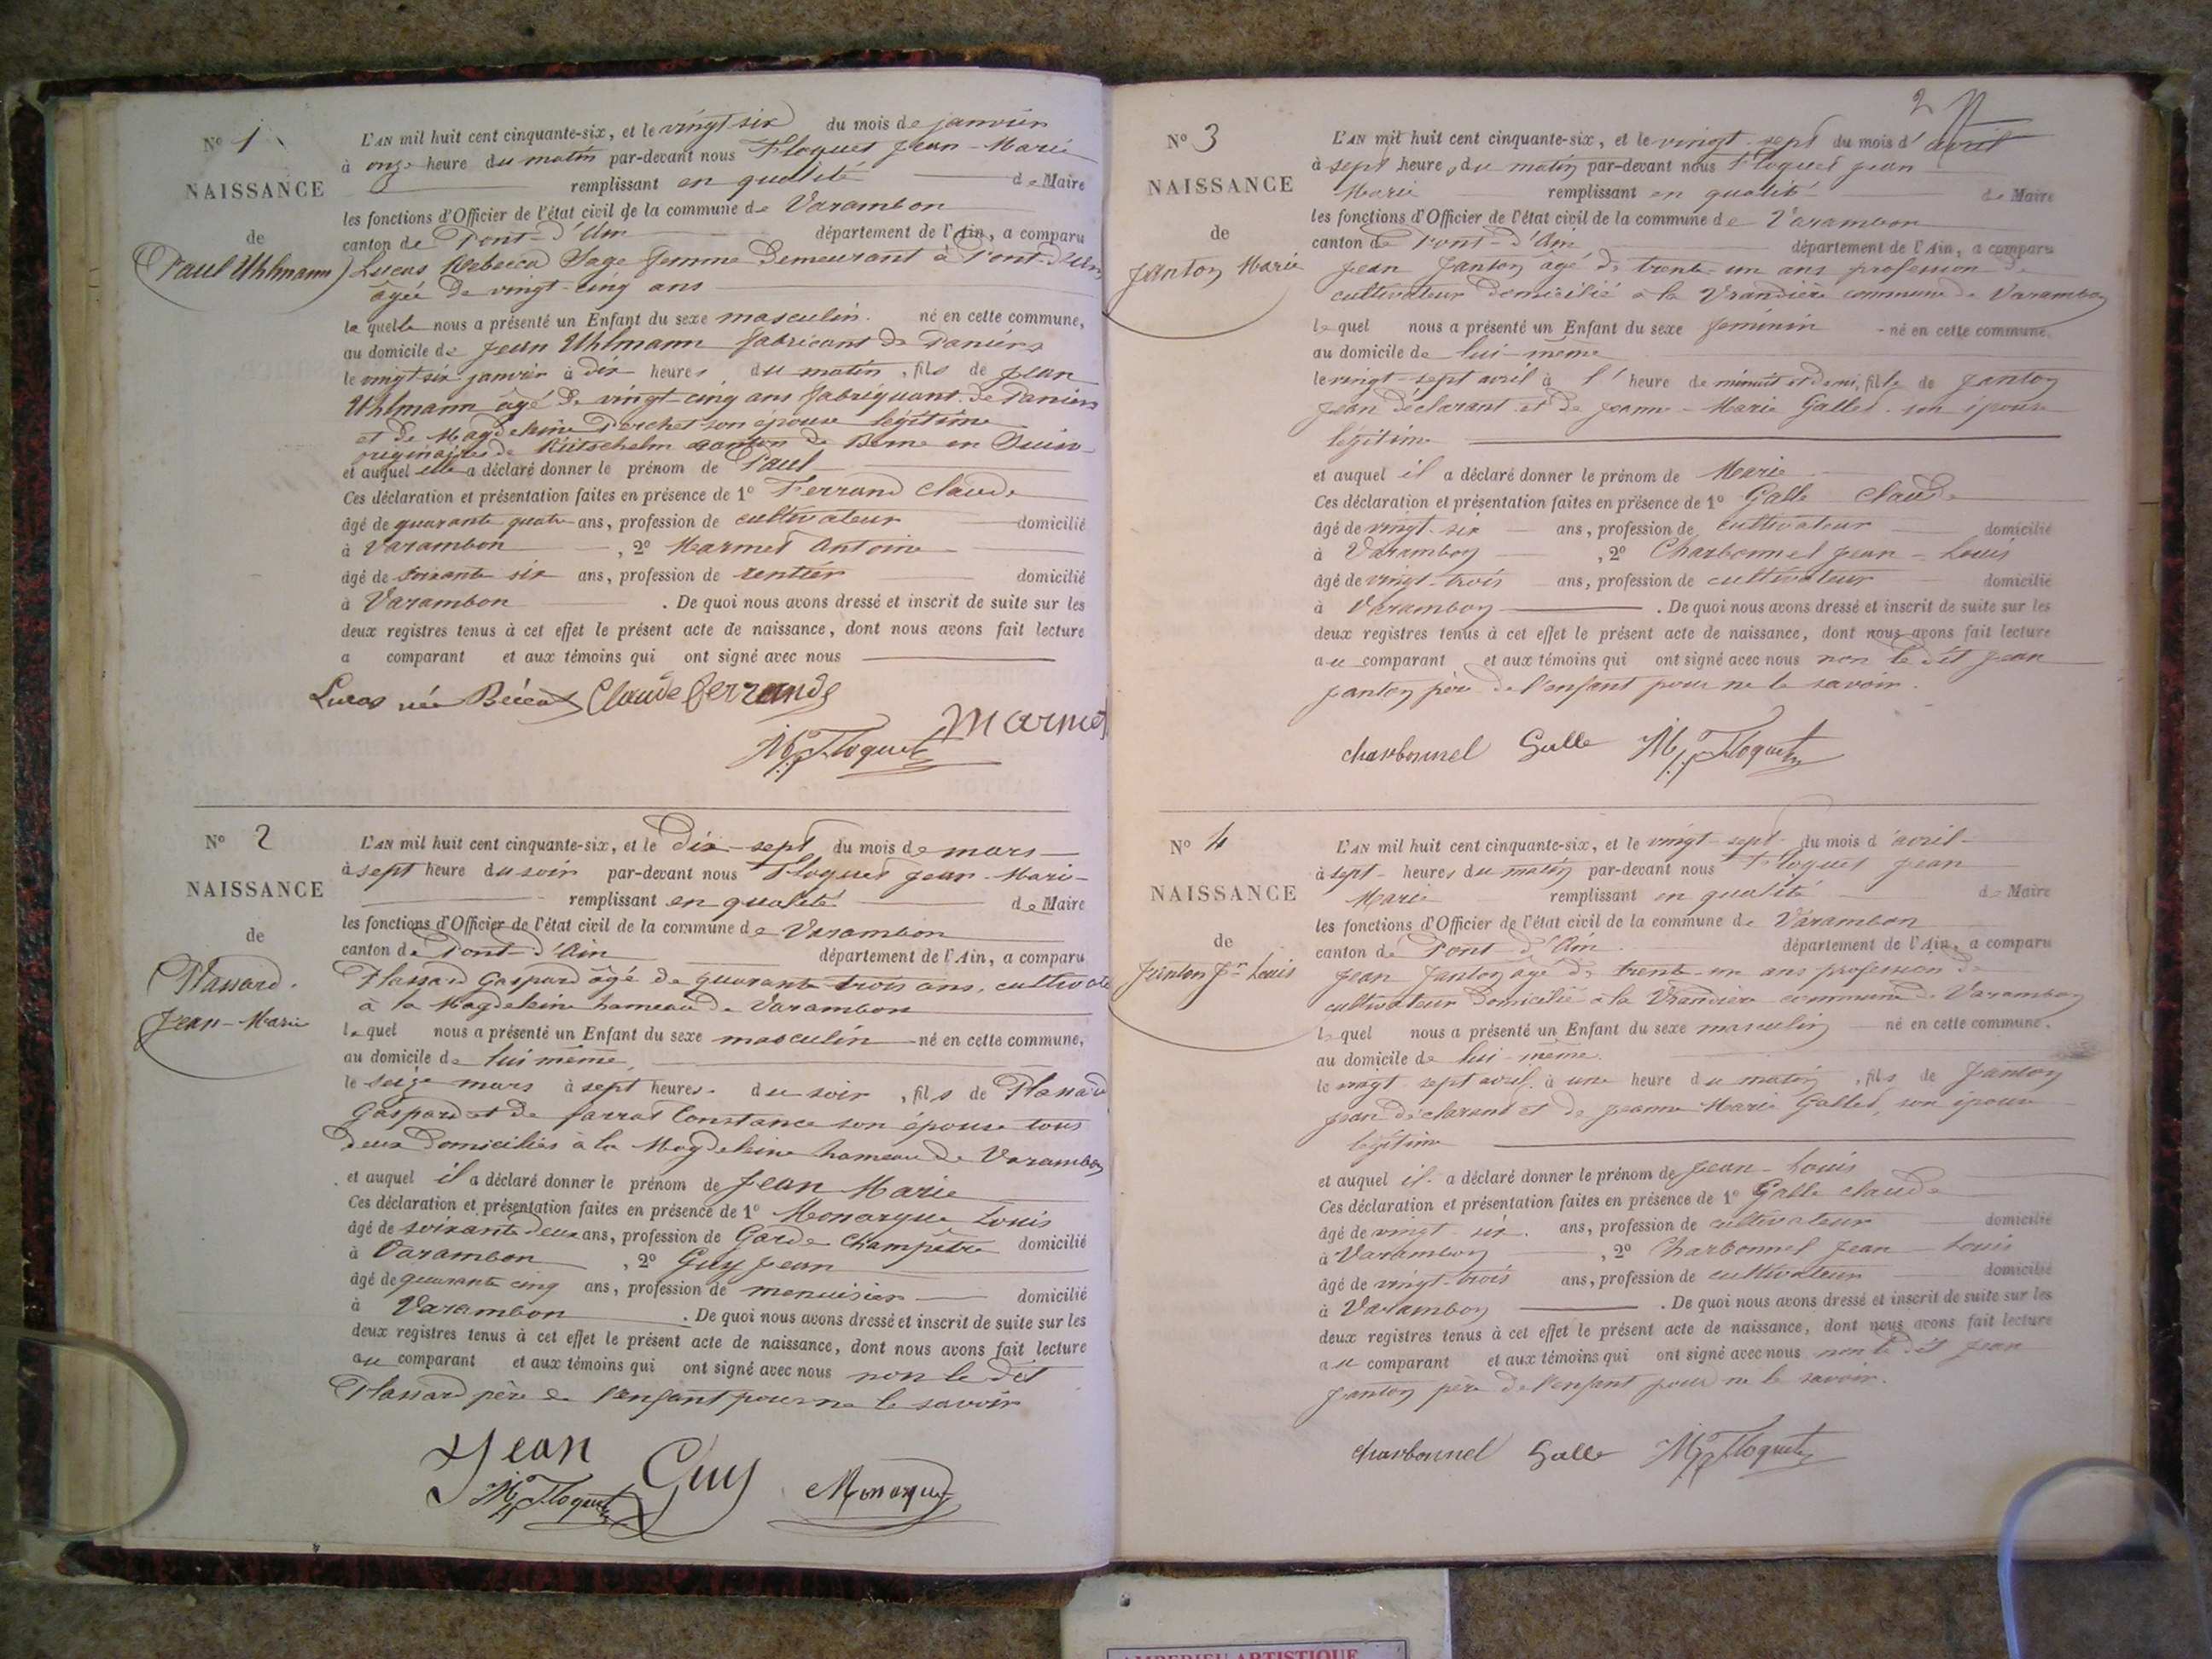 N° 1
NAISSANCE
de
Paul Uhlmann
L'AN mil huit cent cinquante-six, et le vingt six du mois de janvier
à onze heure du matin par-devant nous Floquet Jean-Marie
remplissant en qualité de Maire
les fonctions d'Officier de l'état civil de la commune de Varambon
canton de Pont-d'Ain département de l'Ain, a comparu
Lucas Rebecca Sage femme demeurant à Pont-d'Ain
âgée de vingt-cinq ans
la quelle nous a présenté un Enfant du sexe masculin. né en cette commune,
au domicile de Jean Uhlmann fabricant de Paniers
le vingt six janvier à dix heures du matin, fils de Jean
Uhlmann âgé de vingt-cinq ans fabriquant de Paniers
et de Magdeleine son épouse légitime
originaires de canton de Berne en Suisse
et auquel elle a déclaré donner le prénom de Paul
Ces déclaration et présentation faites en présence de 1° Ferrand Claude
âgé de quarante quatre ans, profession de cultivateur domicilié
à Varambon, 2° Marmet Antoine
âgé de soixante six ans, profession de rentier domicilié
à Varambon. De quoi nous avons dressé et inscrit de suite sur les
deux registres tenus à cet effet le présent acte de naissance, dont nous avons fait lecture
a comparant et aux témoins qui ont signé avec nous
Lucas née Claude ferrand
Marmet
M. Floquet
N° 2
NAISSANCE
de
Plassard.
Jean-Marie
L'AN mil huit cent cinquante-six, et le dix-sept du mois de mars
à sept heure du soir par-devant nous Floquet Jean-Marie
remplissant en qualité de Maire
les fonctions d'Officier de l'état civil de la commune de Varambon
canton de Pont-d'Ain département de l'Ain, a comparu
Plassard Gaspard âgé de quarante trois ans, cultivate
à la Magdeleine hameau de Varambon
lequel nous a présenté un Enfant du sexe masculin né en cette commune,
au domicile de lui même,
le seize mars à sept heures du soir, fils de Plassard
Gaspard et de Constance son épouse tous
deux domiciliés à la Magdeleine hameau de Varambon
et auquel il a déclaré donner le prénom de Jean Marie
Ces déclaration et présentation faites en présence de 1° Monarque Louis
âgé de soixante deux ans, profession de Garde Champêtre domicilié
à Varambon, 2° Guy Jean
âgé de quarante cinq ans, profession de menuisier domicilié
à Varambon. De quoi nous avons dressé et inscrit de suite sur les
deux registres tenus à cet effet le présent acte de naissance, dont nous avons fait lecture
au comparant et aux témoins qui ont signé avec nous non le dit
Plassard père de l'enfant pour ne le savoir
Jean Guy Monarque
M. Floquet
2
N° 3
NAISSANCE
de
Janton Marie
L'AN mil huit cent cinquante-six, et le vingt-sept du mois d'avril
à sept heures du matin par-devant nous Floquet Jean
Marie remplissant en qualité de Maire
les fonctions d'Officier de l'état civil de la commune de Varambon
canton de Pont-d'Ain département de l'Ain, a comparu
Jean Janton âgé de trente-un ans profession de
cultivateur domicilié à la commune de Varambon
lequel nous a présenté un Enfant du sexe féminin né en cette commune.
au domicile de lui-même
le vingt-sept avril à l'heure de minuit et demi, fille de Janton
Jean déclarant et de Jeanne-Marie Gallet son épouse
légitime
et auquel il a déclaré donner le prénom de Marie
Ces déclaration et présentation faites en présence de 1° Galle Claude
âgé de vingt-six ans, profession de cultivateur domicilié
à Varambon, 2° Charbonnel Jean-Louis
âgé de vingt-trois ans, profession de cultivateur domicilié
à Varambon. De quoi nous avons dressé et inscrit de suite sur les
deux registres tenus à cet effet le présent acte de naissance, dont nous avons fait lecture
au comparant et aux témoins qui ont signé avec nous non le dit Jean
Janton père de l'enfant pour ne le savoir.
charbonnel Galle M. Floquet
N° 4
NAISSANCE
de
Janton Jn Louis
L'AN mil huit cent cinquante-six, et le vingt-sept du mois d'avril
à sept heures du matin par-devant nous Floquet Jean
Marie remplissant en qualité de Maire
les fonctions d'Officier de l'état civil de la commune de Varambon
canton de Pont d'Ain département de l'Ain, a comparu
Jean Janton âgé de trente-un ans profession de
cultivateur domicilié à la commune de Varambon
lequel nous a présenté un Enfant du sexe masculin né en cette commune.
au domicile de lui-même.
le vingt-sept avril à une heure du matin, fils de Janton
Jean déclarant et de Jeanne Marie Gallet, son épouse
légitime
et auquel il a déclaré donner le prénom de Jean-Louis
Ces déclaration et présentation faites en présence de 1° Galle Claude
âgé de vingt six ans, profession de cultivateur domicilié
à Varambon, 2° Charbonnel Jean Louis
âgé de vingt-trois ans, profession de cultivateur domicilié
à Varambon. De quoi nous avons dressé et inscrit de suite sur les
deux registres tenus à cet effet le présent acte de naissance, dont nous avons fait lecture
au comparant et aux témoins qui ont signé avec nous non le dit Jean
Janton père de l'enfant pour ne le savoir.
charbonnel Galle M. Floquet
AMBERIEU ARTISTIQUE